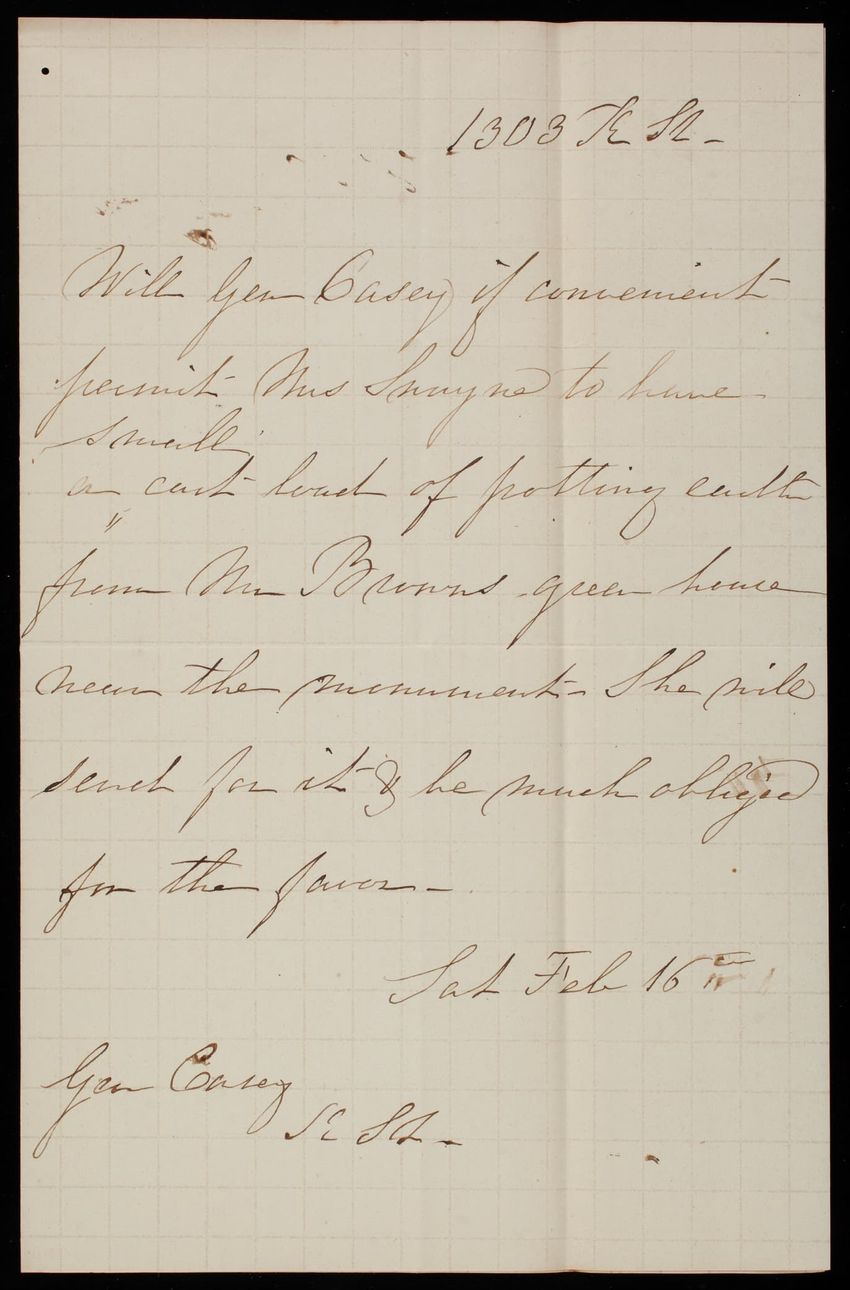 1303 K St-
Will Gen Casey if convenient
permit Mrs Swayne to have
small
a cart load of potting earth
"
from Mr Browns green house
near the monument- She will
send for it & be much obliged
for the favor-
Sat Feb 16th
Gen Casey
K St-